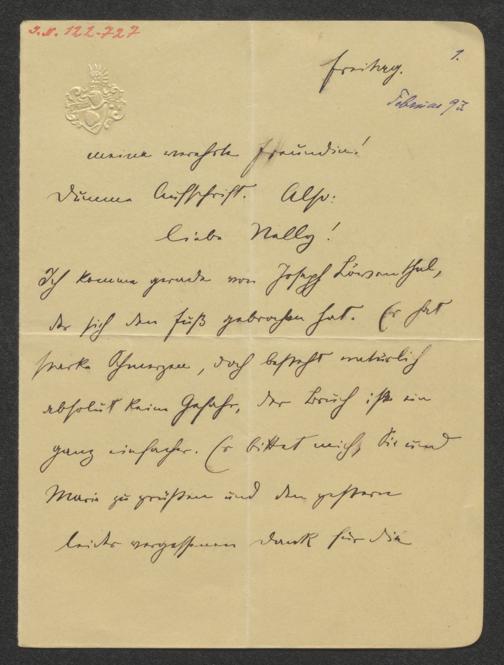 I.N. 122.727
1.
Freitag.
Februar 93
meine verehrte Freundin!
Dumme Aufschrift. Also:
liebe Nelly!
Ich komme gerade von Joseph Löwenthal,
der sich den Fuß gebrochen hat. Er hat
starke Schmerzen, doch besteht natürlich
absolut keine Gefahr, der Bruch ist ein
ganz einfacher. Er bittet mich, Sie und
Marie zu grüßen und den gestern
leider vergessenen Dank für die